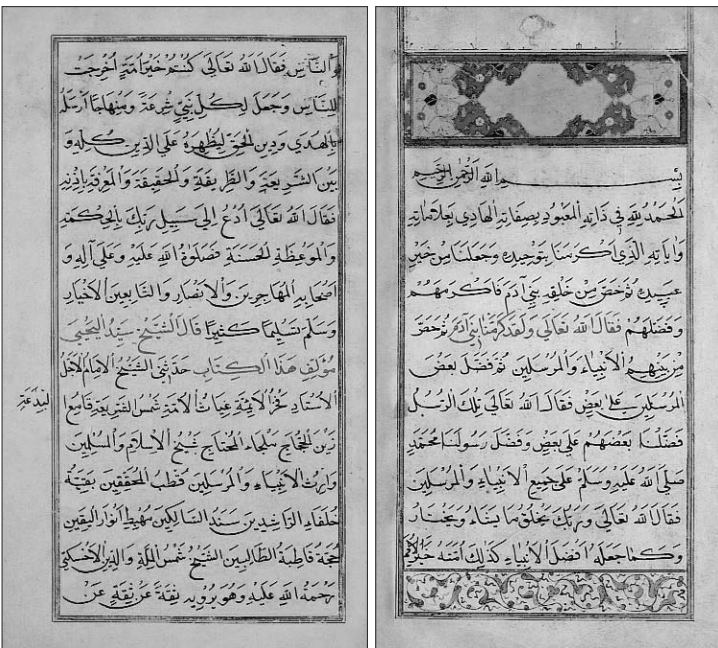 بِسْمِ اللهِ الرَّحْمٰنِ الرَّحِيمِ
اَلْحَمْدُ لِلّٰهِ فِي ذَاتِهِ الْمَعْبُودِ بِصِفَاتِهِ الْهَادِي بِعَلَامَاتِهِ
وَاٰيَاتِهِ الَّذِي اَكْرَمَنَا بِتَوْحِيدِهِ وَجَعَلَنَا مِنْ خَيْرِ
عَبِيدِهِ ثُمَّ خَصَّ مِنْ خَلْقِهِ بَنِي آدَمَ فَاَكْرَمَهُمْ
وَفَضَّلَهُمْ فَقَالَ اللهُ تَعَالَى وَلَقَدْ كَرَّمْنَا بَنِي آدَمَ ثُمَّ خَصَّ
مِنْ بَيْنِهِمُ الْاَنْبِيَاءَ وَالْمُرْسَلِينَ ثُمَّ فَضَّلَ بَعْضَ
الْمُرْسَلِينَ عَلَى بَعْضٍ فَقَالَ اللهُ تَعَالَى تِلْكَ الرُّسُلُ
فَضَّلْنَا بَعْضَهُمْ عَلَى بَعْضٍ وَفَضَّلَ رَسُولَنَا مُحَمَّدٍ
صَلَّى اللهُ عَلَيْهِ وَسَلَّمَ عَلَى جَمِيعِ الْاَنْبِيَاءِ وَالْمُرْسَلِينَ
فَقَالَ اللهُ تَعَالَى وَرَبُّكَ يَخْلُقُ مَا يَشَاءُ وَيَخْتَارُ
وَكَمَا جَعَلَهُ اَفْضَلَ الْاَنْبِيَاءِ كَذٰلِكَ اُمَّتَهُ خَيْرَ الْاُمَمِ
وَالنَّاسِ فَقَالَ اللهُ تَعَالَى كُنْتُمْ خَيْرَ اُمَّةٍ اُخْرِجَتْ
لِلنَّاسِ وَجَعَلَ لِكُلِّ نَبِيٍّ شِرْعَةً وَمِنْهَاجًا اَرْسَلَهُ
بِالْهُدَى وَدِينِ الْحَقِّ لِيُظْهِرَهُ عَلَى الدِّينِ كُلِّهِ وَ
بَيَّنَ الشَّرِيعَةَ وَالطَّرِيقَةَ وَالْحَقِيقَةَ وَالْمَعْرِفَةَ بِاِذْنِهِ
فَقَالَ اللهُ تَعَالَى اُدْعُ اِلَى سَبِيلِ رَبِّكَ بِالْحِكْمَةِ
وَالْمَوْعِظَةِ الْحَسَنَةِ فَصَلَوٰةُ اللهِ عَلَيْهِ وَعَلَى آلِهِ وَ
اَصْحَابِهِ الْمُهَاجِرِينَ وَالْاَنْصَارِ وَالتَّابِعِينَ الْاَخْيَارِ
وَسَلَّمَ تَسْلِيمًا كَثِيرًا قَالَ الشَّيْخُ سَيِّدُ
مُؤَلِّفُ هٰذَا الْكِتَابِ حَدَّثَنِي الشَّيْخُ الْاِمَامُ الْاَجَلُّ
الْاُسْتَادُ فَخْرُ الْاَئِمَّةِ غِيَاثُ الْاُمَّةِ شَمْسُ الشَّرِيعَةِ قَامِعُ
زَيْنُ الْحُجَّاجِ مَلْجَاءُ الْمُحْتَاجِ شَيْخُ الْاِسْلَامِ وَالْمُسْلِمِينَ
وَارِثُ الْاَنْبِيَاءِ وَالْمُرْسَلِينَ قُطْبُ الْمُحَقِّقِينَ بَقِيَّةُ
خُلَفَاءِ الرَّاشِدِينَ سَنَدُ السَّالِكِينَ مَهْبِطُ اَنْوَارِ الْيَقِينِ
حُجَّةُ قَاطِبَةِ الطَّالِبِينَ الشَّيْخُ شَمْسُ الْمِلَّةِ وَالدِّينِ
رَحْمَةُ اللهِ عَلَيْهِ وَهُوَ يَرْوِيهِ ثِقَةً عَنْ ثِقَةٍ عَنْ